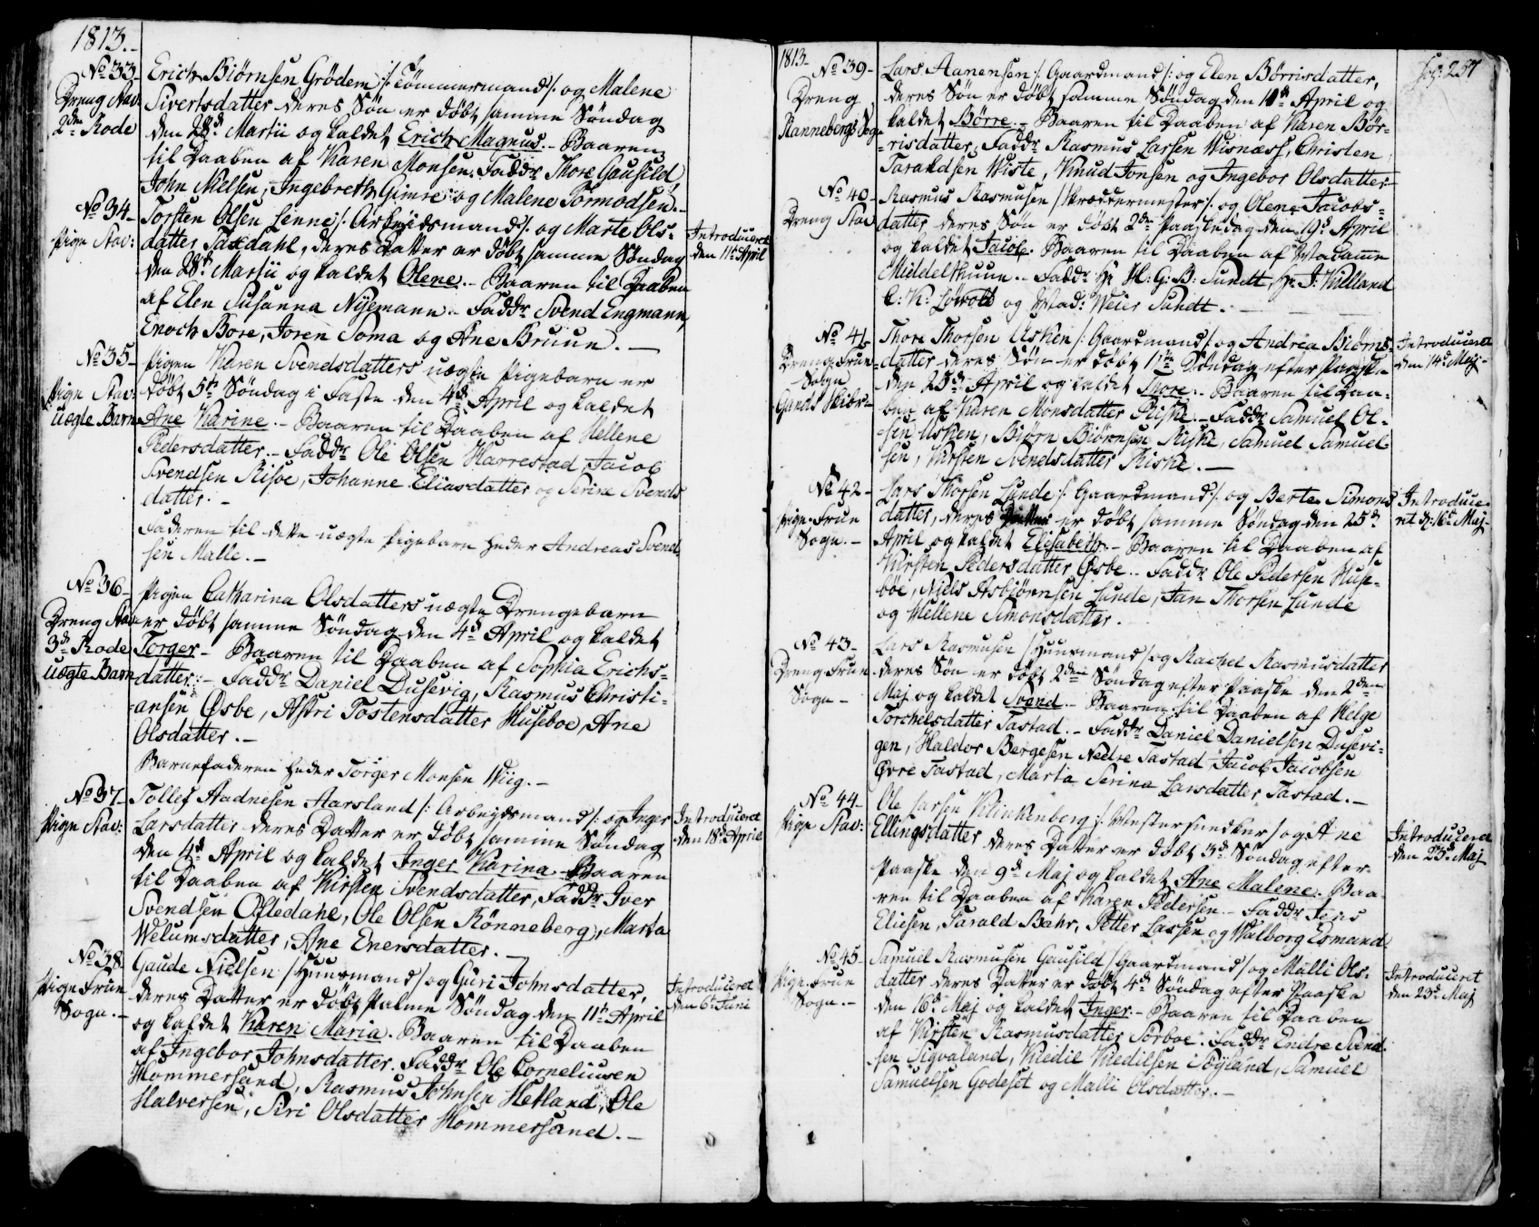 1813.-
No 33-
Dreng Stav:
2den Rode
Erich Biørnsen Grødem /: Tømmermand /: og Malene
Sivertsdatter deres Søn er døbt samme Søndag
den 28de Martii og kaldet Erich Magnus. - Baaren
til Daaben af Karen Monsen. Faddr Thore Gausild,
John Nielsen, Ingebreth Gimre og Malene Tormodsen.-
No 34-
Pige Stav:
Torsten Olsen Lenne /: Arbeidsmand /: og Marte Ols-
datter Taxdahl, deres Datter er døbt samme Søndag
den 28de Martii og kaldet Olene. - Baaren til Daaben
af Elen Susanna Nyemann. - Faddr Svend Engmann,
Enoch Bore, Joren Soma og Ane Bruun. -
Introduceret
den 11te April
No 35-
Pige Stav:
uægte Barn
Pigen Karen Svendsdatters uægte Pigebarn er
døbt 5te Søndag i Faste den 4de April og kaldet
Ane Karine. - Baaren til Daaben af Hellene
Pedersdatter. - Faddr Ole Olsen Harrestad, Jacob
Svendsen Risoe, Johanne Eliasdatter og Serine Svends
datter. -
Faderen til dette uægte Pigebarn heder Andreas Svend
sen Malle. -
No 36-
Dreng Stav
3de Rode
uægte Barn
Pigen Catharina Olsdatters uægte Drengebarn
er døbt samme Søndag den 4de April og kaldet
Torger - Baaren til Daaben af Sophia Erichs-
datter. - Faddr Daniel Dusevig, Rasmus Christi-
ansen Øsbe, Astri Tostensdatter Huseboe, Ane
Olsdatter. -
Barnefaderen heder Torger Monsen Wiig. -
No 37-
Pige Stav:
Tollef Aadnesen Aarsland /: Arbeidsmand /: og Inger
Larsdatter deres Datter er døbt samme Søndag
den 4de April og kaldet Inger Karina. Baaren
til Daaben af Kirsten Svendsdatter, Faddr Iver
Svendsen Oftedahl, Ole Olsen Rønneberg, Marta
Welumsdatter, Ane Enersdatter. -
Introduceret
den 18de April
No 38
Pige Frue
Sogn. -
Gaude Nielsen /Huusmand/ og Guri Johnsdatter,
deres Datter er døbt Palme Søndag den 11te April
og kaldet Karen Maria. Baaren til Daaben
af Ingebor Johnsdatter. Faddr Ole Corneliusen
Hommersand, Rasmus Johnsen Hetland, Ole
Halversen, Siri Olsdatter Hommersand. -
Introduceret
den 6te Juni
1813-
fol. 257
No 39-
Dreng
Rannebergs Sogn
Lars Aanensen /: Gaardmand /: og Elen Børrisdatter,
deres Søn er døbt samme Søndag den 11te April og
kaldet Børre. - Baaren til Daaben af Karen Bør-
-risdatter, Faddr Rasmus Larsen Wisnæss, Christen
Taraldsen Wiste, Knud Jonsen og Ingebor Olsdatter-
No 40-
Dreng Stav
Rasmus Rasmusen /Skræddermester/ og Olene Jacobs-
datter deres Søn er døbt 2den Paaskedag den 19de April
og kaldet Jacob. - Baaren til Daaben af Madame
Middelthuun. - Faddr Hr H: G: B: Sundt, Hr J: Kielland
C: K: Løvold og Mad: Weier Sundt. -
No 41-
Dreng Frue
Sogn
Thore Thorsen Usken /: Gaardmand /: og Andrea Biørns-
datter deres Søn er døbt 1ste Søndag efter Paaske
den 25de April og kaldet Thore. - Baaren til Daa-
ben af Karen Monsdatter Riske. - Faddr Samuel Ol-
sen Usken, Biørn Biørnsen Riske, Samuel Samuel-
sen, Kirsten Svendsdatter Riske. -
Introduceret
den 14de Maj-
No 42-
Pige Frue
Sogn. -
Lars Thorsen Lunde /: Gaardmand /: og Berte Simons
datter, deres Datter er døbt samme Søndag den 25de
April og kaldet Elisabeth. - Baaren til Daaben af
Kirsten Pedersdatter Øsbe. - Faddr Ole Pedersen Huse-
bøe, Niels Asbiørnsen Lunde, Jan Thorsen Lunde
og Hellene Simonsdatter.
Introduce-
ret d: 16de Maj-
No 43-
Dreng Frue
Sogn-
Lars Rasmusen /Huusmand/ og Rachel Rasmusdatter
deres Søn er døbt 2den Søndag efter Paaske den 2den
Maj og kaldet Svend. - Baaren til Daaben af Helge
Torchelsdatter Tastad. - Faddr Daniel Danielsen Dusevi-
gen, Haldor Bergesen Nedre Tastad, Jacob Jacobsen
Øvre Tastad, Marta Serina Larsdatter Tastad. -
No 44-
Pige Stav:
Ole Larsen Klinkenberg /: /: og Ane
Ellingsdatter deres Datter er døbt 3de Søndag efter
Paaske den 9de Maj og kaldet Ane Malene. Baa-
ren til Daaben af Karen Pedersen. - Faddr Jens
Eliesen, Tarald Bahr, Petter Larsen og Walborg Esmand
Introduceret
den 23de Maj
No 45-
Pige Frue
Sogn. -
Samuel Rasmusen Gausild /Gaardmand/ og Malli Ols-
datter deres Datter er døbt 4de Søndag efter Paaske
den 16de Maj og kaldet Inger. - Baaren til Daaben
af Kirsten Rasmusdatter Sørboe. Faddr Endre Svend
sen Sigvaland, Kiedil Kiedilsen i Foysland, Samuel
Samuelsen Godeset og Malli Olsdatter. -
Introduceret
den 23de Maj